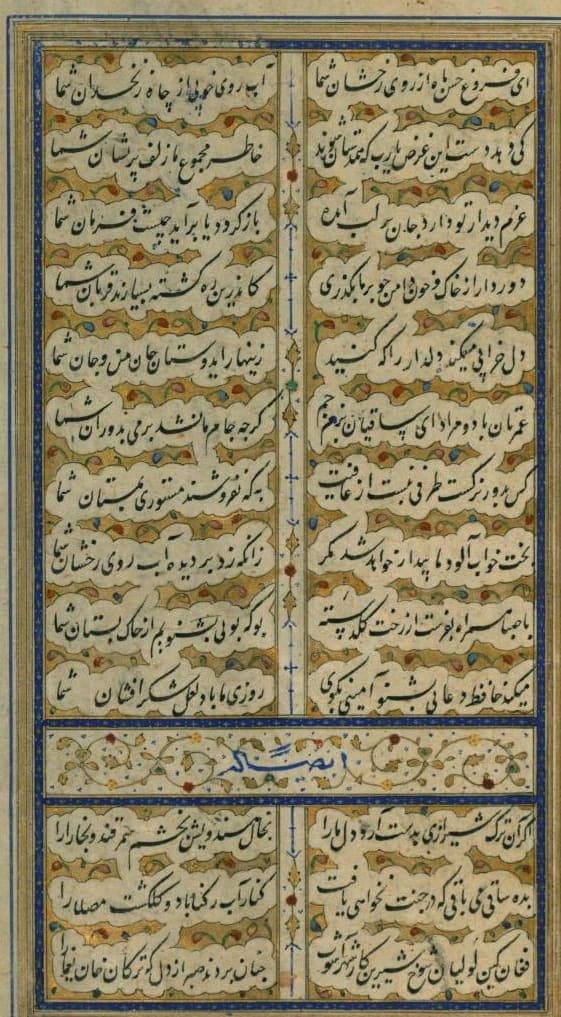 ای فروغ حسن ماه از روی رخشان شما
آب روی خوبی از چاه زنخدان شما
کی دهد دست این غرض یارب که همدستان شوند
خاطر مجموع ما زلف پریشان شما
عزم دیدار تو دارد جان بر لب آمده
باز گردد یا برآید چیست فرمان شما
دور دار از خاک و خون دامن چو بر ما بگذری
کاندرین ره کشته بسیارند قربان شما
دل خرابی میکند دلدار را آگه کنید
زینهار ای دوستان جان من و جان شما
عمرتان باد و مراد ای ساقیان بزم جم
گرچه جام ما نشد پر می بدوران شما
کس بدور نرگست طرفی نبست از عافیت
به که نفروشند مستوری بمستان شما
بخت خواب آلود ما بیدار خواهد شد مگر
زانکه زد بر دیده آب روی رخشان شما
با صبا همراه بفرست از رخت گلدسته
بو که بوئی بشنویم از خاک بستان شما
میکند حافظ دعائی بشنو آمینی بگوی
روزی ما باد لعل شکر افشان شما
ایضاً له
اگر آن ترک شیرازی بدست آرد دل ما را
بخال هندویش بخشم سمرقند و بخارا را
بده ساقی می باقی که در جنت نخواهی یافت
کنار آب رکناباد و گلگشت مصلا را
فغان کین لولیان شوخ شیرین کار شهر آشوب
چنان بردند صبر از دل که ترکان خوان یغما را